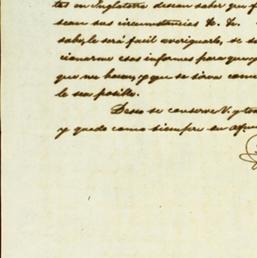 tes en Inglaterra desean saber que f
sean sus circunstancias &. &.
sabe, le será facil averiguarlo, se s
cionarme esos informes para que p
que me hacen, y que se sirva comu
le sea posible.
Deseo se conserve V. y te
y quedo como siempre su afmo